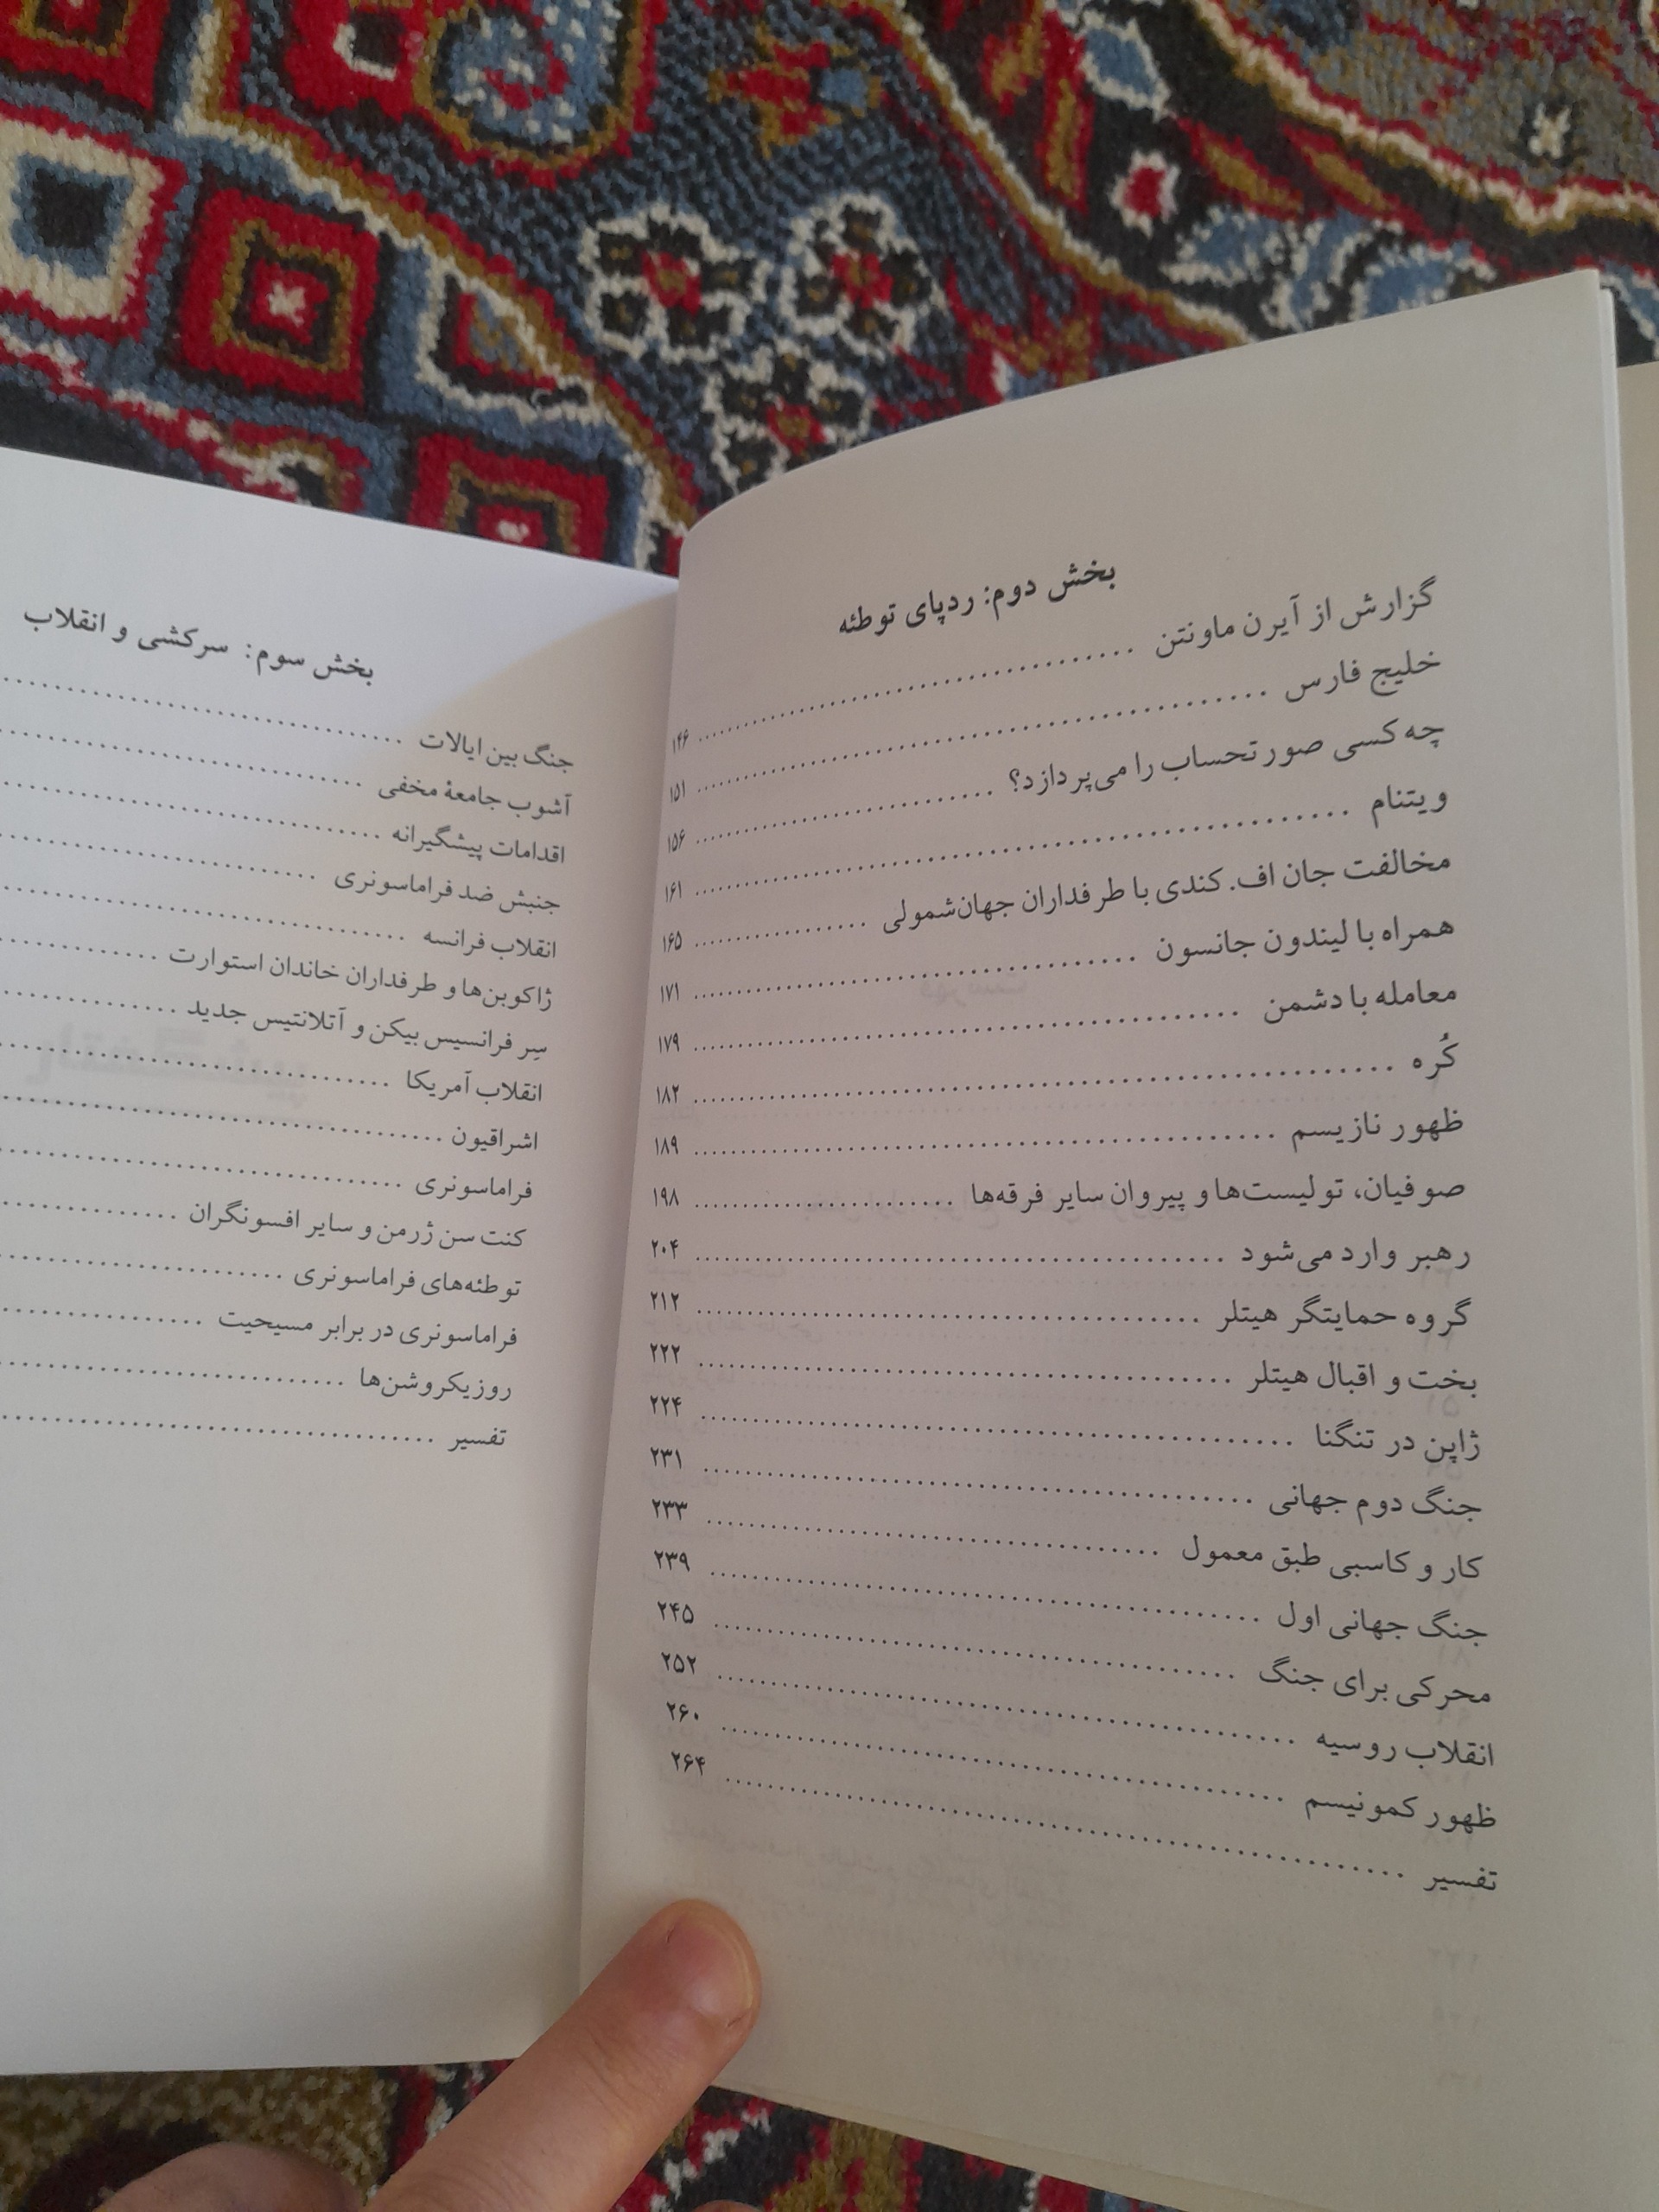 بخش دوم: ردپای توطئه
گزارش از آیرن ماونتن ........ ۱۴۶
خلیج فارس ........ ۱۵۱
چه کسی صورتحساب را می‌پردازد؟ ........ ۱۵۶
ویتنام ........ ۱۶۱
مخالفت جان اف. کندی با طرفداران جهان‌شمولی ........ ۱۶۵
همراه با لیندون جانسون ........ ۱۷۱
معامله با دشمن ........ ۱۷۹
کُره ........ ۱۸۲
ظهور نازیسم ........ ۱۸۹
صوفیان، تولیست‌ها و پیروان سایر فرقه‌ها ........ ۱۹۸
رهبر وارد می‌شود ........ ۲۰۴
گروه حمایتگر هیتلر ........ ۲۱۲
بخت و اقبال هیتلر ........ ۲۲۲
ژاپن در تنگنا ........ ۲۲۴
جنگ دوم جهانی ........ ۲۳۱
کار و کاسبی طبق معمول ........ ۲۳۳
جنگ جهانی اول ........ ۲۳۹
محرکی برای جنگ ........ ۲۴۵
انقلاب روسیه ........ ۲۵۲
ظهور کمونیسم ........ ۲۶۰
تفسیر ........ ۲۶۴
بخش سوم: سرکشی و انقلاب
جنگ بین ایالات ........
آشوب جامعهٔ مخفی ........
اقدامات پیشگیرانه ........
جنبش ضد فراماسونری ........
انقلاب فرانسه ........
ژاکوبن‌ها و طرفداران خاندان استوارت ........
سِر فرانسیس بیکن و آتلانتیس جدید ........
انقلاب آمریکا ........
اشراقیون ........
فراماسونری ........
کنت سن ژرمن و سایر افسونگران ........
توطئه‌های فراماسونری ........
فراماسونری در برابر مسیحیت ........
روزیکروشن‌ها ........
تفسیر ........